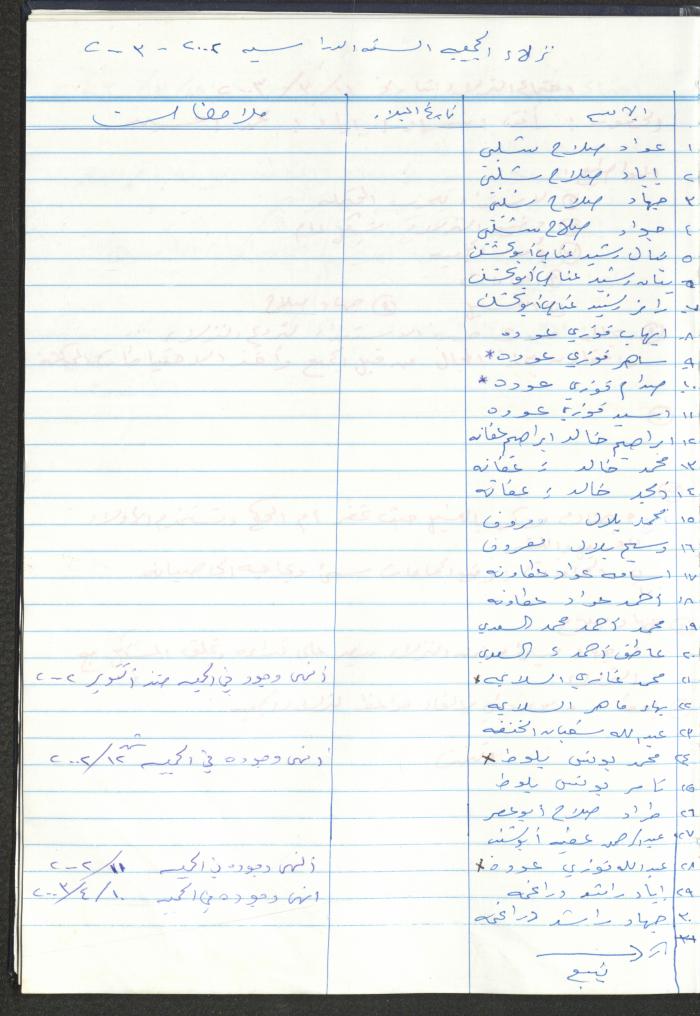 نزلاء الجمعيه السنه الدراسيه ٢٠٠٢ - ٢٠٠٣
الاسم تاريخ الميلاد ملاحظات
١ عواد صلاح شلبي
٢ اياد صلاح شلبي
٣ جهاد صلاح شلبي
٤ جواد صلاح شلبي
٥ رشيد عناب أبو
٦ رشيد عناب أبو
٧ رامز رشيد عناب أبو
٨ ايهاب فوزي عوده
٩ ساهر فوزي عوده *
١٠ صدام فوزي عوده *
١١ اسيد فوزي عوده
١٢ ابراهيم خالد ابراهيم عفانه
١٣ محمد خالد = عفانه
١٤ امجد خالد = عفانه
١٥ محمد بلال معروف
١٦ وسيم بلال معروف
١٧ اسامه عواد عطاونه
١٨ احمد عواد عطاونه
١٩ محمد احمد محمد السعدي
٢٠ عاطف احمد = السعدي
٢١ محمد غازي السلايمه * أنهى وجوده في الجمعيه منذ أكتوبر ٢٠٠٢
٢٢ بهاء ماهر السلايمه
٢٣ عبدالله شعبان
٢٤ محمد يونس بلوط * أنهى وجوده في الجمعيه شهر ٢٠٠٢/١٢
٢٥ تامر يونس بلوط
٢٦ طراد صلاح ابو
٢٧ عبدالرحمن أبو
٢٨ عبدالله فوزي عوده * أنهى وجوده في الجمعيه ٢٠٠٢/١١
٢٩ اياد راشد دراغمه انهى وجوده في الجمعيه ٢٠٠٣/٤/١٠
٣٠ جهاد راشد دراغمه
٣١
يتبع